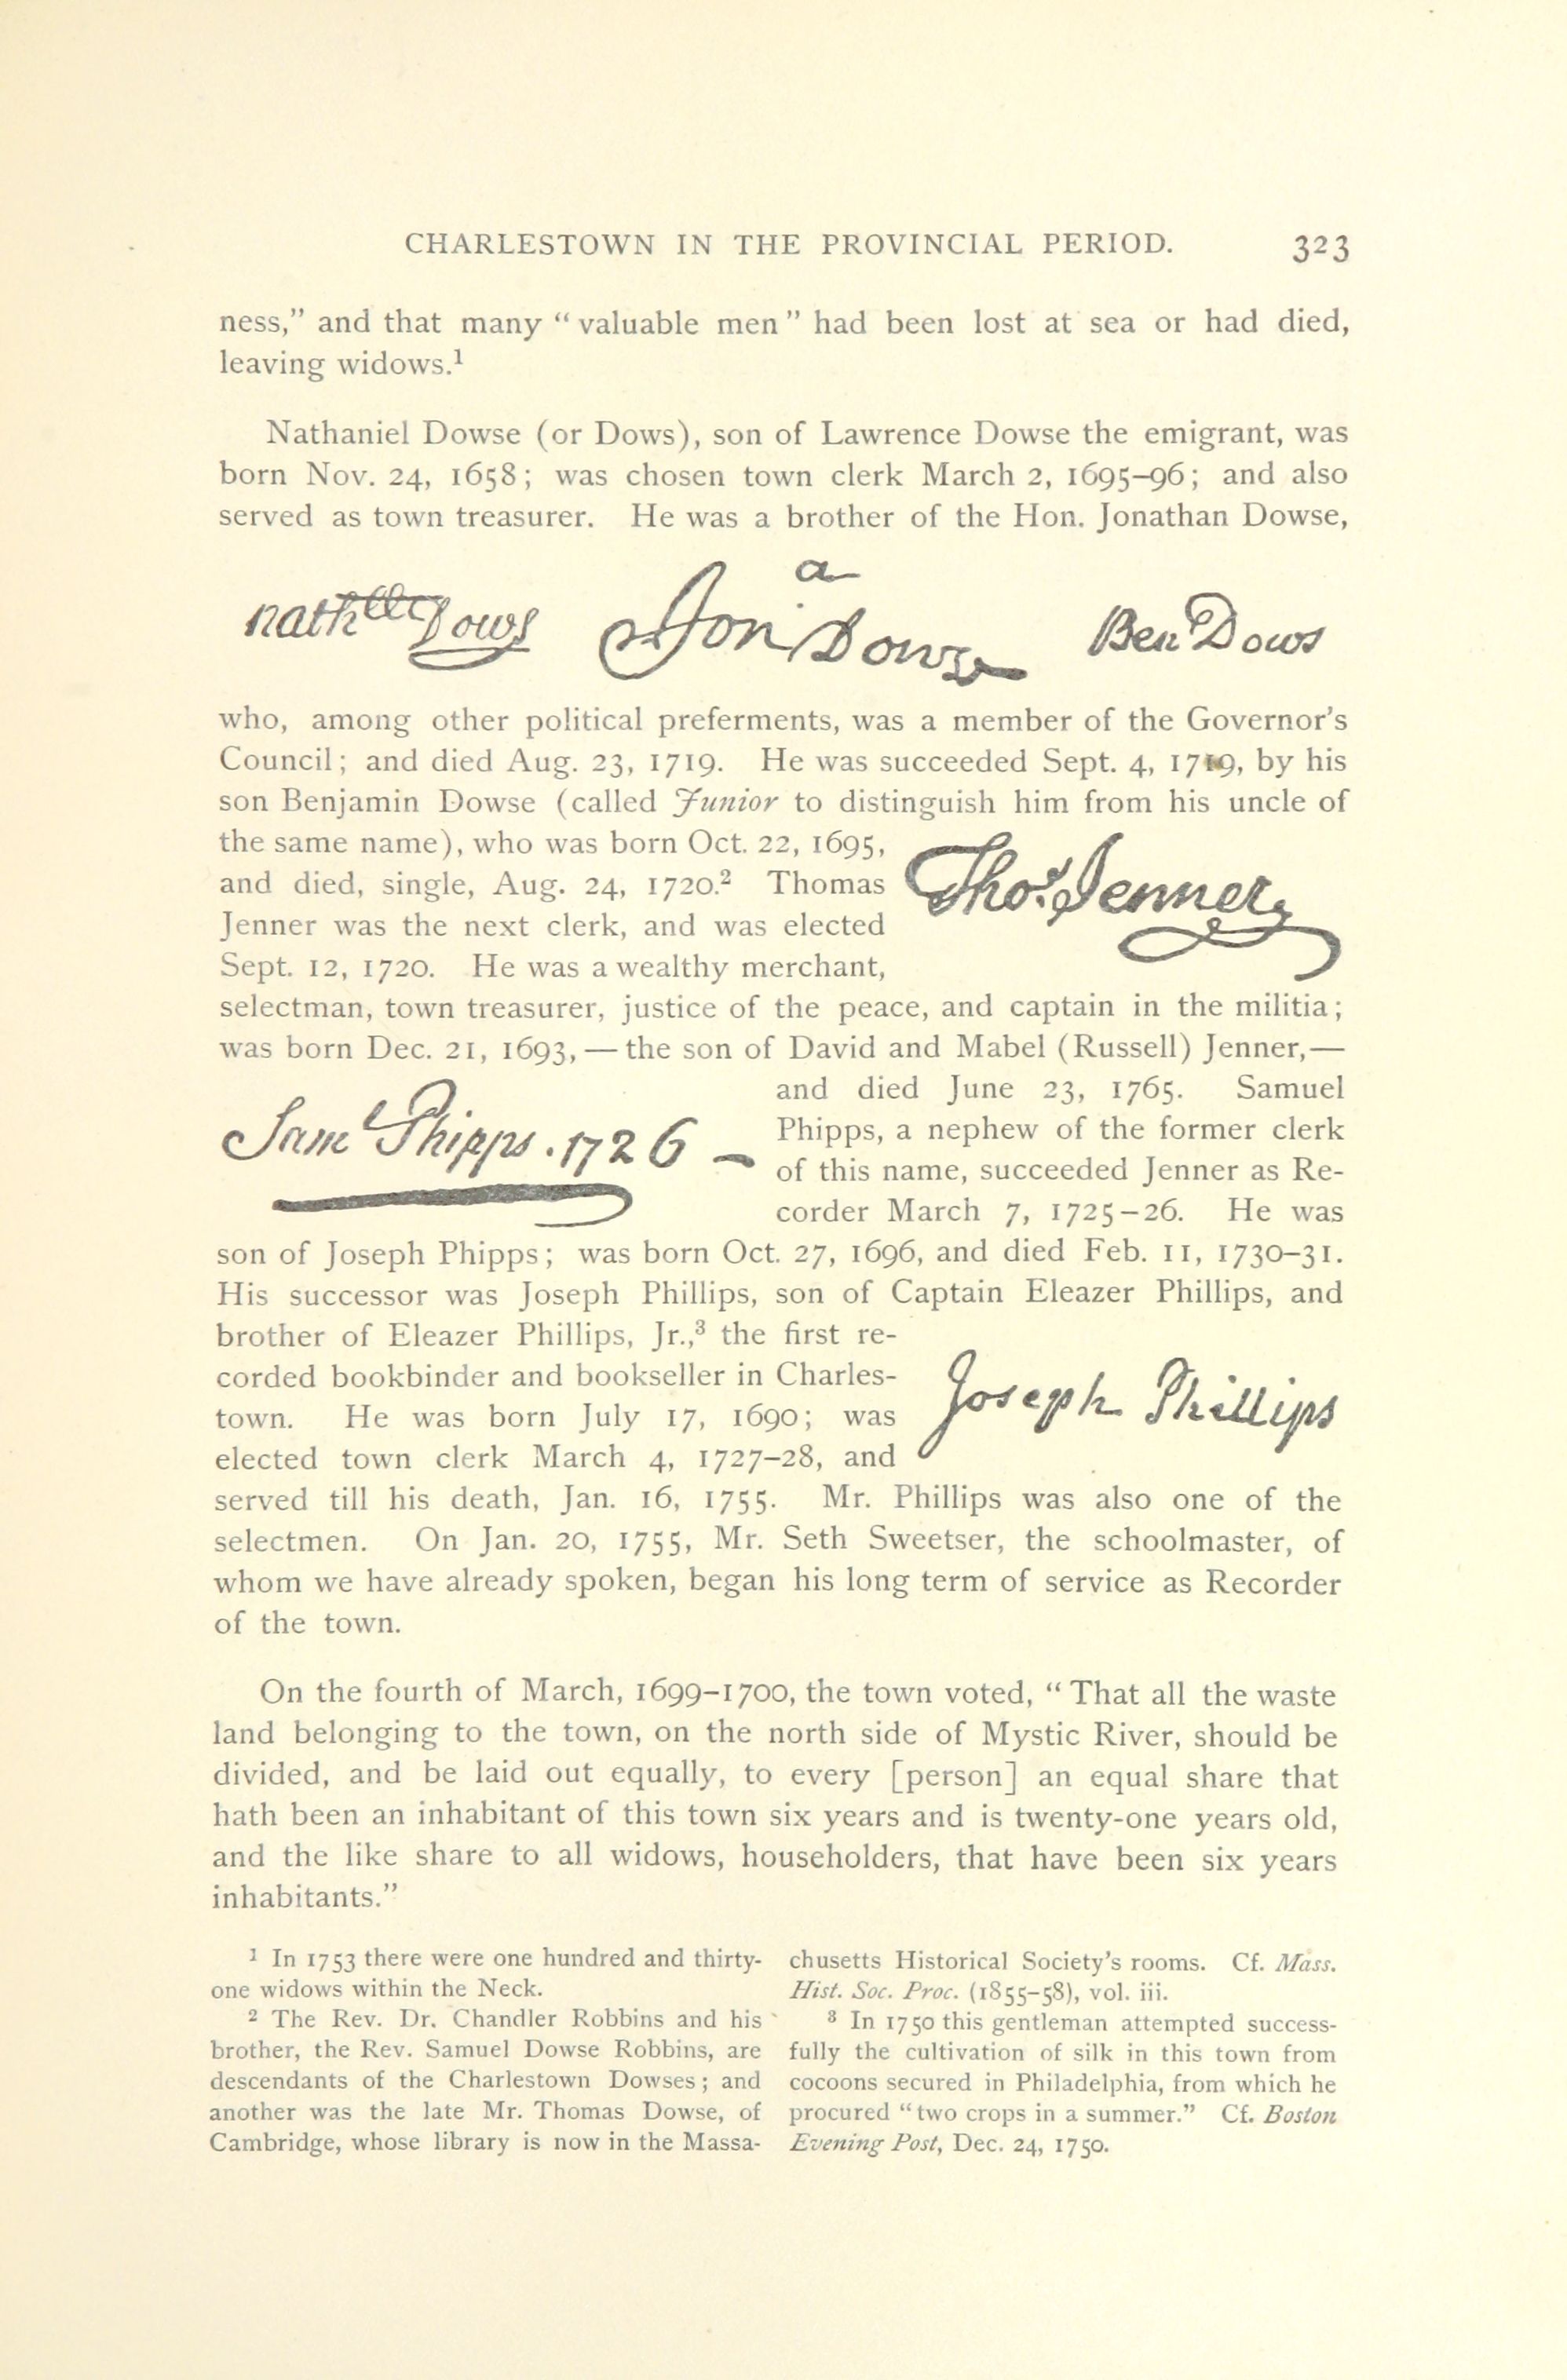 CHARLESTOWN IN THE PROVINCIAL PERIOD. 323
ness,” and that many “valuable men” had been lost at sea or had died,
leaving widows.¹
Nathaniel Dowse (or Dows), son of Lawrence Dowse the emigrant, was
born Nov. 24, 1658; was chosen town clerk March 2, 1695–96; and also
served as town treasurer. He was a brother of the Hon. Jonathan Dowse,
nathll Dows Jonª Dowse Ben Dows
who, among other political preferments, was a member of the Governor’s
Council; and died Aug. 23, 1719. He was succeeded Sept. 4, 1719, by his
son Benjamin Dowse (called Junior to distinguish him from his uncle of
the same name), who was born Oct. 22, 1695,
and died, single, Aug. 24, 1720.² Thomas
Jenner was the next clerk, and was elected
Sept. 12, 1720. He was a wealthy merchant,
Thos. Jenner
selectman, town treasurer, justice of the peace, and captain in the militia;
was born Dec. 21, 1693,—the son of David and Mabel (Russell) Jenner,—
Saml Phipps. 1726 –
and died June 23, 1765. Samuel
Phipps, a nephew of the former clerk
of this name, succeeded Jenner as Re-
corder March 7, 1725–26. He was
son of Joseph Phipps; was born Oct. 27, 1696, and died Feb. 11, 1730–31.
His successor was Joseph Phillips, son of Captain Eleazer Phillips, and
brother of Eleazer Phillips, Jr.,³ the first re-
corded bookbinder and bookseller in Charles-
town. He was born July 17, 1690; was
elected town clerk March 4, 1727–28, and
Joseph Phillips
served till his death, Jan. 16, 1755. Mr. Phillips was also one of the
selectmen. On Jan. 20, 1755, Mr. Seth Sweetser, the schoolmaster, of
whom we have already spoken, began his long term of service as Recorder
of the town.
On the fourth of March, 1699–1700, the town voted, “That all the waste
land belonging to the town, on the north side of Mystic River, should be
divided, and be laid out equally, to every [person] an equal share that
hath been an inhabitant of this town six years and is twenty-one years old,
and the like share to all widows, householders, that have been six years
inhabitants.”
¹ In 1753 there were one hundred and thirty-
one widows within the Neck.
² The Rev. Dr. Chandler Robbins and his
brother, the Rev. Samuel Dowse Robbins, are
descendants of the Charlestown Dowses; and
another was the late Mr. Thomas Dowse, of
Cambridge, whose library is now in the Massa-
chusetts Historical Society’s rooms. Cf. Mass.
Hist. Soc. Proc. (1855–58), vol. iii.
³ In 1750 this gentleman attempted success-
fully the cultivation of silk in this town from
cocoons secured in Philadelphia, from which he
procured “two crops in a summer.” Cf. Boston
Evening Post, Dec. 24, 1750.